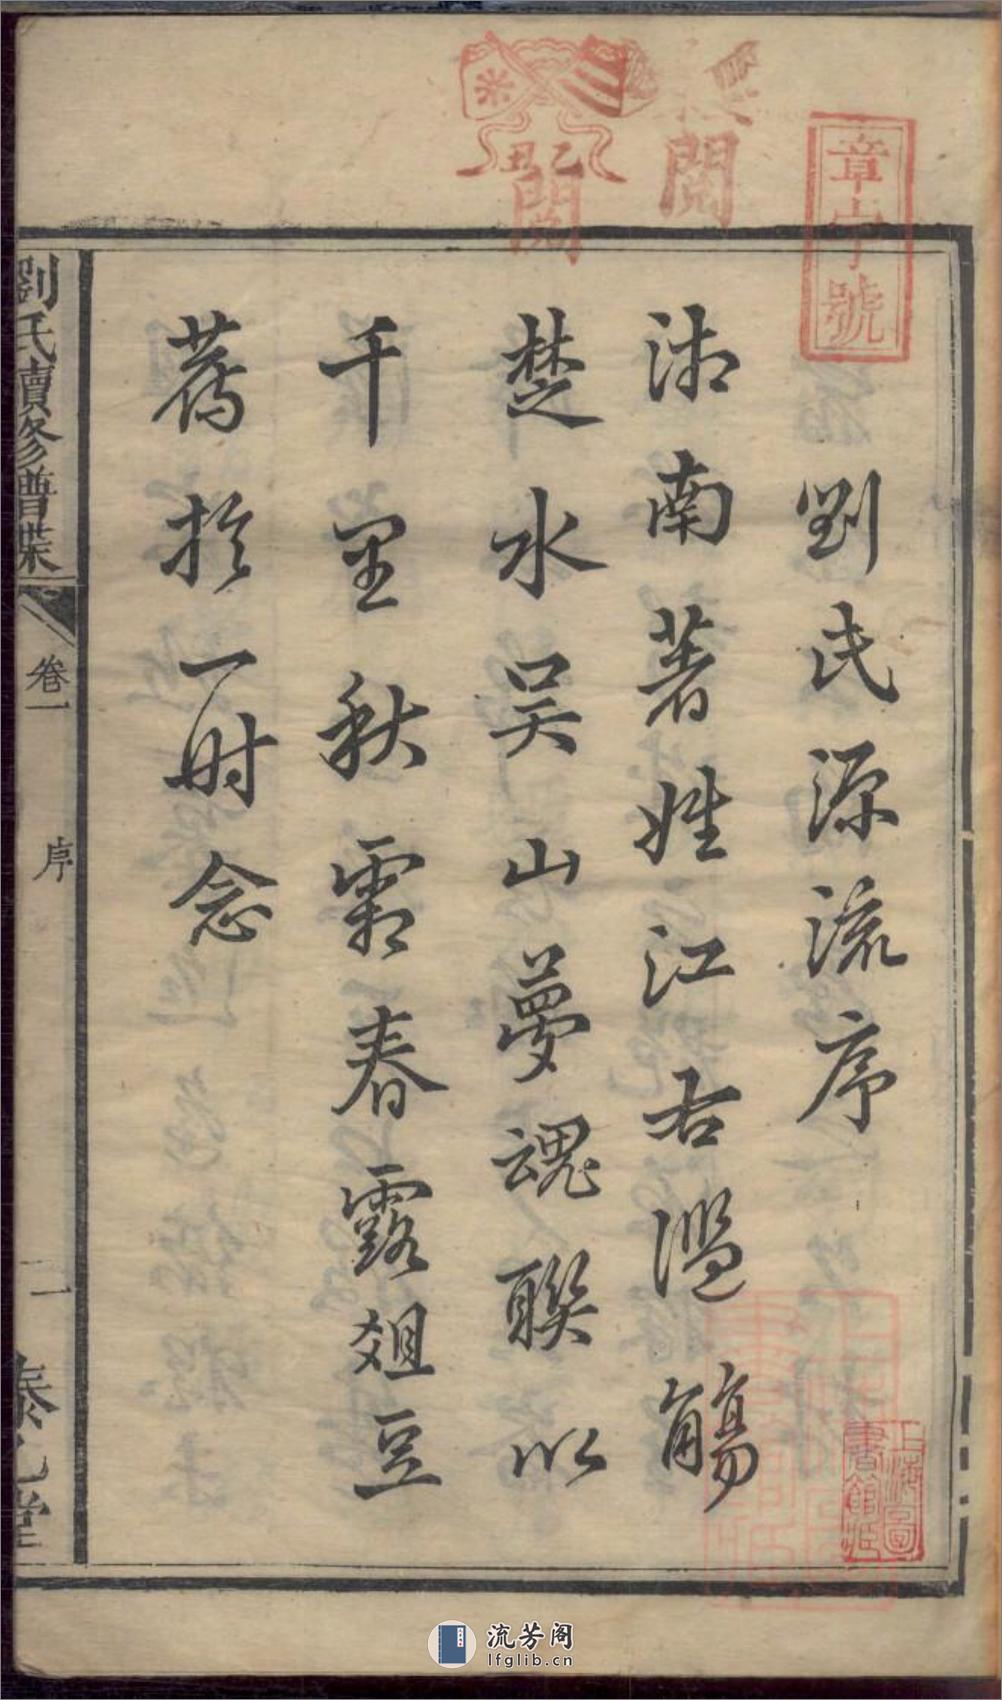 劉氏源流序
沛南著姓江右濫觴
楚水吴山夢魂聯以
千里秋霜春露俎豆
薦於一时念
劉氏續修譜牒
卷一
序
二
閱
閱
乙丑
章
號
上海圖書館藏
流芳阁
lfglib.cn